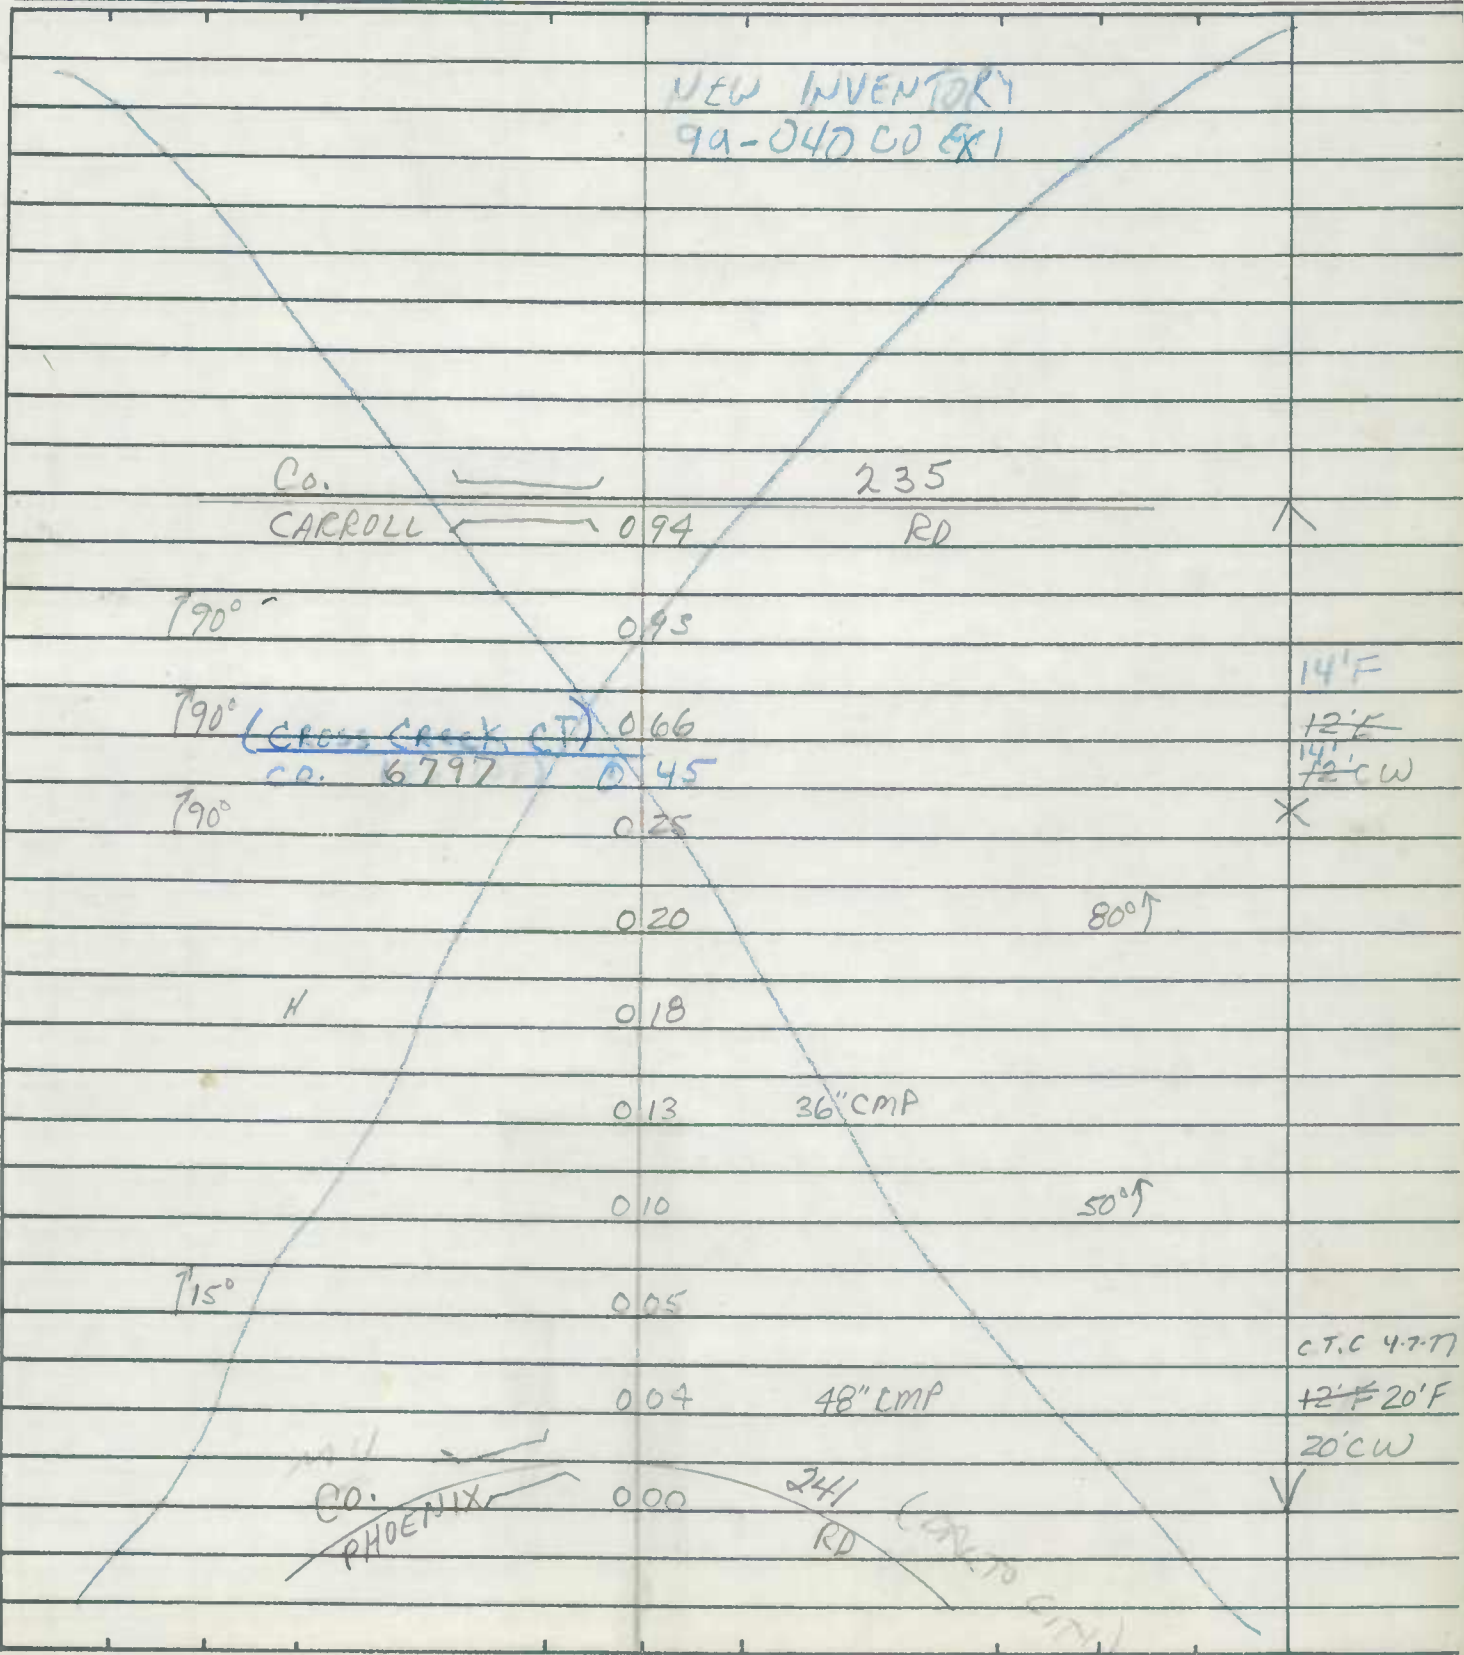 NEW INVENTORY
99-040 CO EX1
Co. 235
CARROLL 0 94 RD
↑90° 0 93
14'F
↑90° (CROSS CREEK CT) 0 66 12'F
CO. 6797 0 45 14' 12'CW
↑90° 0 25
0 20 80°↑
H 0 18
0 13 36" CMP
0 10 50°↑
↑15° 0 05
C.T.C 4-7-77
0 04 48" CMP 12'F 20'F
20'CW
CO. 0 00 241
PHOENIX RD